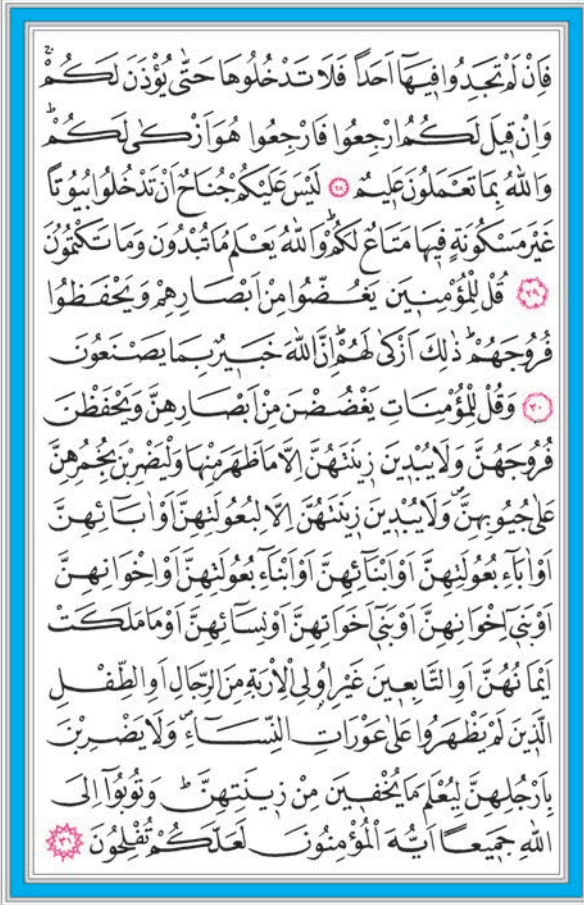 فَاِنْ لَمْ تَجِدُوا فِيهَٓا اَحَداً فَلَا تَدْخُلُوهَا حَتّٰى يُؤْذَنَ لَكُمْۚ
وَاِنْ قِيلَ لَكُمُ ارْجِعُوا فَارْجِعُوا هُوَ اَزْكٰى لَكُمْۜ
وَاللّٰهُ بِمَا تَعْمَلُونَ عَلِيمٌ ﴿٢٨﴾ لَيْسَ عَلَيْكُمْ جُنَاحٌ اَنْ تَدْخُلُوا بُيُوتاً
غَيْرَ مَسْكُونَةٍ فِيهَا مَتَاعٌ لَكُمْۜ وَاللّٰهُ يَعْلَمُ مَا تُبْدُونَ وَمَا تَكْتُمُونَ
﴿٢٩﴾ قُلْ لِلْمُؤْمِنِينَ يَغُضُّوا مِنْ اَبْصَارِهِمْ وَيَحْفَظُوا
فُرُوجَهُمْۜ ذٰلِكَ اَزْكٰى لَهُمْۜ اِنَّ اللّٰهَ خَبِيرٌ بِمَا يَصْنَعُونَ
﴿٣٠﴾ وَقُلْ لِلْمُؤْمِنَاتِ يَغْضُضْنَ مِنْ اَبْصَارِهِنَّ وَيَحْفَظْنَ
فُرُوجَهُنَّ وَلَا يُبْدِينَ زِينَتَهُنَّ اِلَّا مَا ظَهَرَ مِنْهَا وَلْيَضْرِبْنَ بِخُمُرِهِنَّ
عَلٰى جُيُوبِهِنَّۖ وَلَا يُبْدِينَ زِينَتَهُنَّ اِلَّا لِبُعُولَتِهِنَّ اَوْ اٰبَٓائِهِنَّ
اَوْ اٰبَٓاءِ بُعُولَتِهِنَّ اَوْ اَبْنَٓائِهِنَّ اَوْ اَبْنَٓاءِ بُعُولَتِهِنَّ اَوْ اِخْوَانِهِنَّ
اَوْ بَنِٓي اِخْوَانِهِنَّ اَوْ بَنِٓي اَخَوَاتِهِنَّ اَوْ نِسَٓائِهِنَّ اَوْ مَا مَلَكَتْ
اَيْمَانُهُنَّ اَوِ التَّابِعِينَ غَيْرِ اُو۬لِي الْاِرْبَةِ مِنَ الرِّجَالِ اَوِ الطِّفْلِ
الَّذِينَ لَمْ يَظْهَرُوا عَلٰى عَوْرَاتِ النِّسَٓاءِۖ وَلَا يَضْرِبْنَ
بِاَرْجُلِهِنَّ لِيُعْلَمَ مَا يُخْفِينَ مِنْ زِينَتِهِنَّۜ وَتُوبُٓوا اِلَى
اللّٰهِ جَمِيعاً اَيُّهَ الْمُؤْمِنُونَ لَعَلَّكُمْ تُفْلِحُونَ ﴿٣١﴾